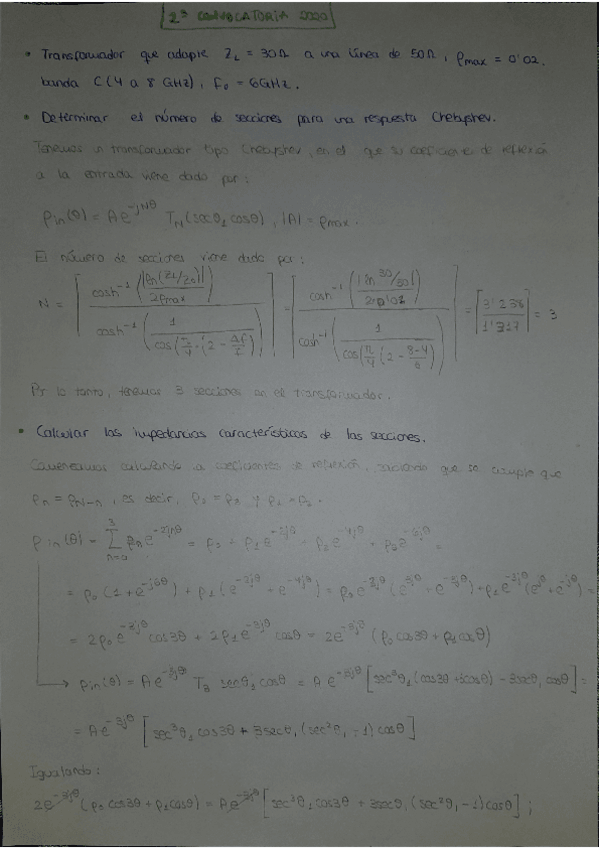 2ª CONVOCATORIA 2020
• Transformador que adapte Z_L = 30Ω a una línea de 50Ω, ρmax = 0'02.
banda C (4 a 8 GHz), F₀ = 6GHz.
• Determinar el número de secciones para una respuesta Chebyshev.
Tenemos un transformador tipo Chebyshev, en el que su coeficiente de reflexión
a la entrada viene dado por:
ρin(θ) = A e^{-jNθ} T_N(secθ₁ cosθ), |A| = ρmax.
El número de secciones viene dado por:
N = ⌈ cosh⁻¹(|ln(Z_L/Z₀)| / 2ρmax) / cosh⁻¹(1 / cos(π/4 · (2 - Δf/f₀))) ⌉ = ⌈ cosh⁻¹(|ln 30/50| / 2·0'02) / cosh⁻¹(1 / cos(π/4 (2 - 8-4/6))) ⌉ = ⌈ 3'238 / 1'317 ⌉ = 3
Por lo tanto, tenemos 3 secciones en el transformador.
• Calcular las impedancias características de las secciones.
Comenzamos calculando coeficientes de reflexión, sabiendo que se cumple que
ρn = ρN-n, es decir, ρ₀ = ρ₃ y ρ₁ = ρ₂.
ρin(θ) = Σ ρn e^{-2jnθ} = ρ₀ + ρ₁ e^{-2jθ} + ρ₂ e^{-4jθ} + ρ₃ e^{-6jθ} =
= ρ₀ (1 + e^{-j6θ}) + ρ₁ (e^{-2jθ} + e^{-4jθ}) = ρ₀ e^{-3jθ} (e^{3jθ} + e^{-3jθ}) + ρ₁ e^{-3jθ} (e^{jθ} + e^{-jθ}) =
= 2ρ₀ e^{-3jθ} cos3θ + 2ρ₁ e^{-3jθ} cosθ = 2e^{-3jθ} (ρ₀ cos3θ + ρ₁ cosθ)
→ ρin(θ) = A e^{-3jθ} T₃ secθ₁ cosθ = A e^{-3jθ} [sec³θ₁ (cos3θ + 3cosθ) - 3secθ₁ cosθ] =
= A e^{-3jθ} [sec³θ₁ cos3θ + 3secθ₁ (sec²θ₁ - 1) cosθ]
Igualando:
2e^{-3jθ} (ρ₀ cos3θ + ρ₁ cosθ) = A e^{-3jθ} [sec³θ₁ cos3θ + 3secθ₁ (sec²θ₁ - 1) cosθ] ;